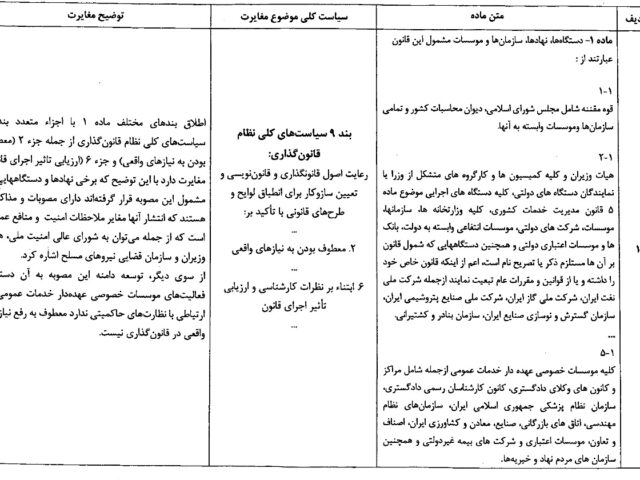 متن ماده
سیاست کلی موضوع مغایرت
توضیح مغایرت
ماده ۱- دستگاه‌ها، نهادها، سازمان‌ها و موسسات مشمول این قانون
عبارتند از :
۱-۱
قوه مقننه شامل مجلس شورای اسلامی، دیوان محاسبات کشور و تمامی
سازمان‌ها وموسسات وابسته به آنها.
۲-۱
هیات وزیران و کلیه کمیسیون ها و کارگروه های متشکل از وزرا یا
نمایندگان دستگاه های دولتی، کلیه دستگاه های اجرایی موضوع ماده
۵ قانون مدیریت خدمات کشوری، کلیه وزارتخانه ها، سازمانها،
موسسات، شرکت های دولتی، موسسات انتفاعی وابسته به دولت، بانک
ها و موسسات اعتباری دولتی و همچنین دستگاههایی که شمول قانون
بر آن ها مستلزم ذکر یا تصریح نام است، اعم از اینکه قانون خاص خود
را داشته و یا از قوانین و مقررات عام تبعیت نمایند ازجمله شرکت ملی
نفت ایران، شرکت ملی گاز ایران، شرکت ملی صنایع پتروشیمی ایران،
سازمان گسترش و نوسازی صنایع ایران، سازمان بنادر و کشتیرانی.
...
۵-۱
کلیه موسسات خصوصی عهده دار خدمات عمومی ازجمله شامل مراکز
و کانون های وکلای دادگستری، کانون کارشناسان رسمی دادگستری،
سازمان نظام پزشکی جمهوری اسلامی ایران، سازمان‌های نظام
مهندسی، اتاق های بازرگانی، صنایع، معادن و کشاورزی ایران، اصناف
و تعاون، موسسات اعتباری و شرکت های بیمه غیردولتی و همچنین
سازمان های مردم نهاد و خیریه‌ها.
بند ۹ سیاست‌های کلی نظام
قانون‌گذاری:
رعایت اصول قانونگذاری و قانون‌نویسی و
تعیین سازوکار برای انطباق لوایح و
طرح‌های قانونی با تأکید بر:
...
۲. معطوف بودن به نیازهای واقعی
...
۶ ابتناء بر نظرات کارشناسی و ارزیابی
تأثیر اجرای قانون
...
اطلاق بندهای مختلف ماده ۱ با اجزاء متعدد
سیاست‌های کلی نظام قانون‌گذاری از جمله جزء ۲
بودن به نیازهای واقعی) و جزء ۶ (ارزیابی تاثیر اجرای
مغایرت دارد با این توضیح که برخی نهادها و
مشمول این مصوبه قرار گرفته‌اند دارای مصوبات و
هستند که انتشار آنها مغایر ملاحظات امنیت و منافع
است که از جمله می‌توان به شورای عالی امنیت ملی،
وزیران و سازمان قضایی نیروهای مسلح اشاره کرد.
از سوی دیگر، توسعه دامنه این مصوبه به آن
فعالیت‌های موسسات خصوصی عهده‌دار خدمات
ارتباطی با نظارت‌های حاکمیتی ندارد معطوف به رفع
واقعی در قانون‌گذاری نیست.